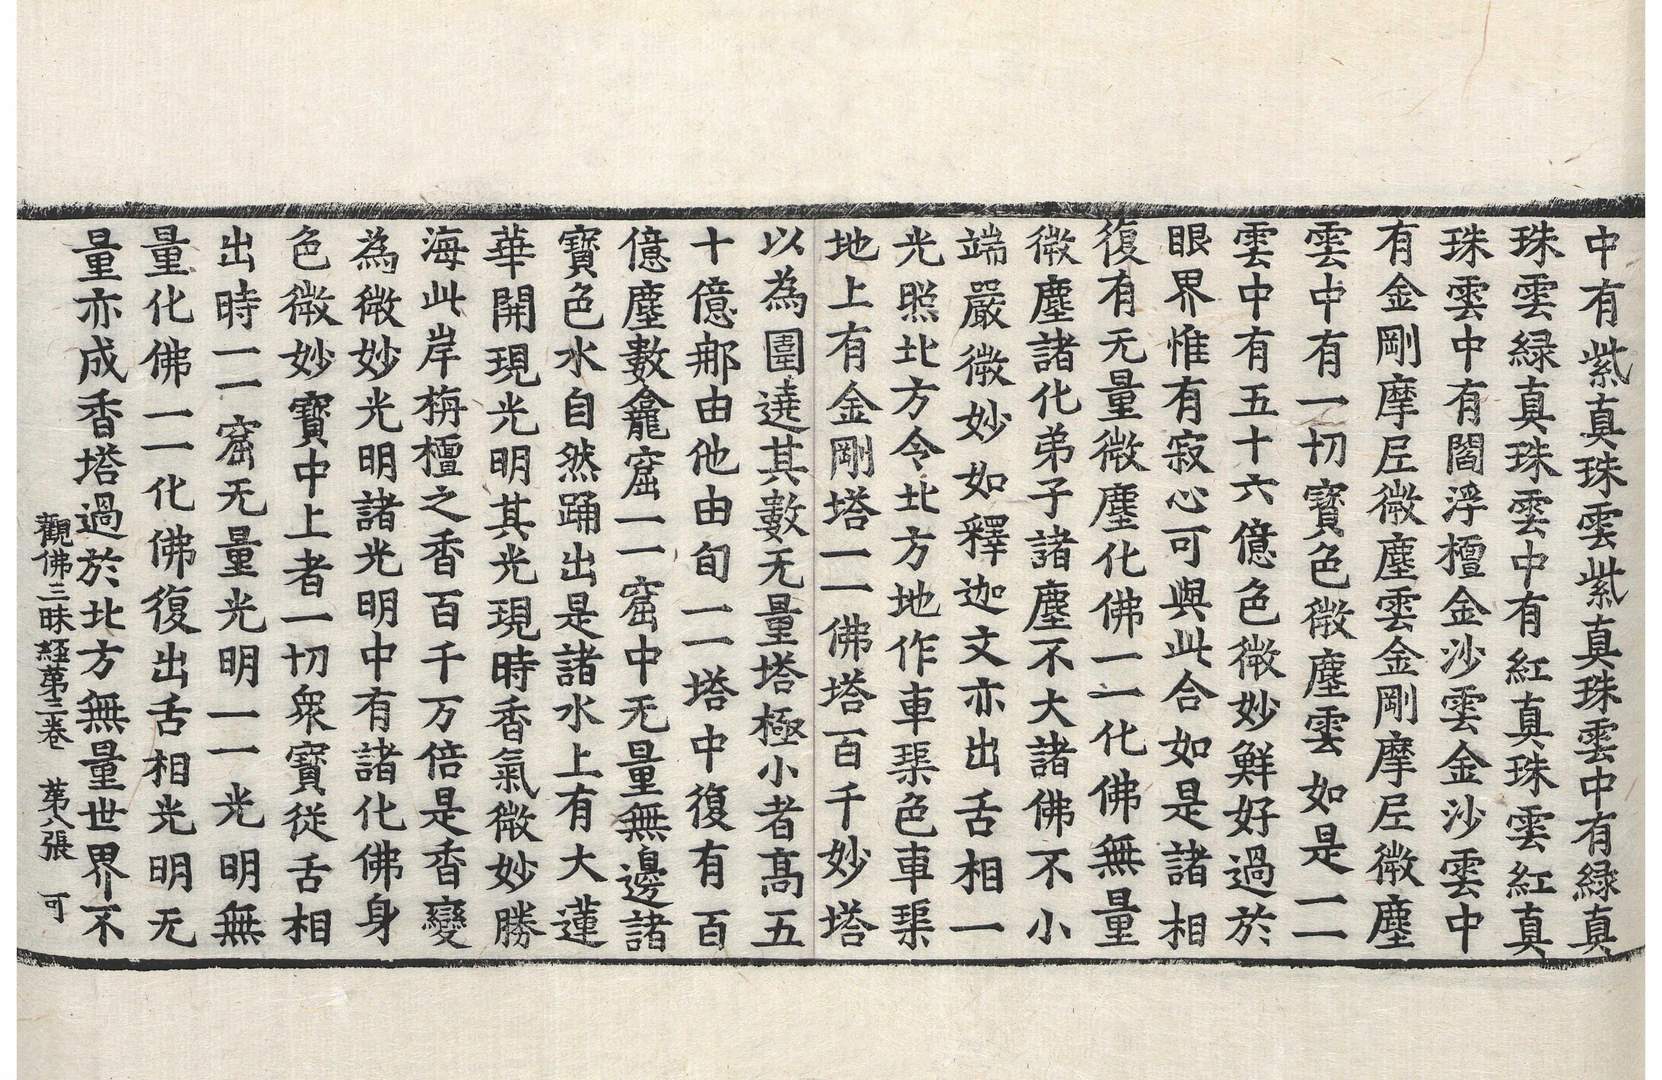 中有紫真珠雲紫真珠雲中有緑真
珠雲緑真珠雲中有紅真珠雲紅真
珠雲中有閻浮檀金沙雲金沙雲中
有金剛摩𡰱微塵雲金剛摩𡰱微塵
雲中有一切寶色微塵雲如是一一
雲中有五十六億色微妙鮮好過於
眼界惟有寂心可與此合如是諸相
復有无量微塵化佛一一化佛無量
微塵諸化弟子諸塵不大諸佛不小
端嚴微妙如釋迦文亦出舌相一
光照北方令北方地作車𤦲色車𤦲
地上有金剛塔一一佛塔百千妙塔
以為圍遶其數无量塔極小者髙五
十億𨚗由他由旬一一塔中復有百
億塵數龕窟一一窟中无量無邊諸
寶色水自然踊出是諸水上有大蓮
華開現光明其光現時香氣微妙勝
海此岸栴檀之香百千万倍是香變
為微妙光明諸光明中有諸化佛身
色微妙寶中上者一切衆寶從舌相
出時一一窟无量光明一一光明無
量化佛一一化佛復出舌相光明无
量亦成香塔過於北方無量世界不
觀佛三昧経第三卷 第八張 可